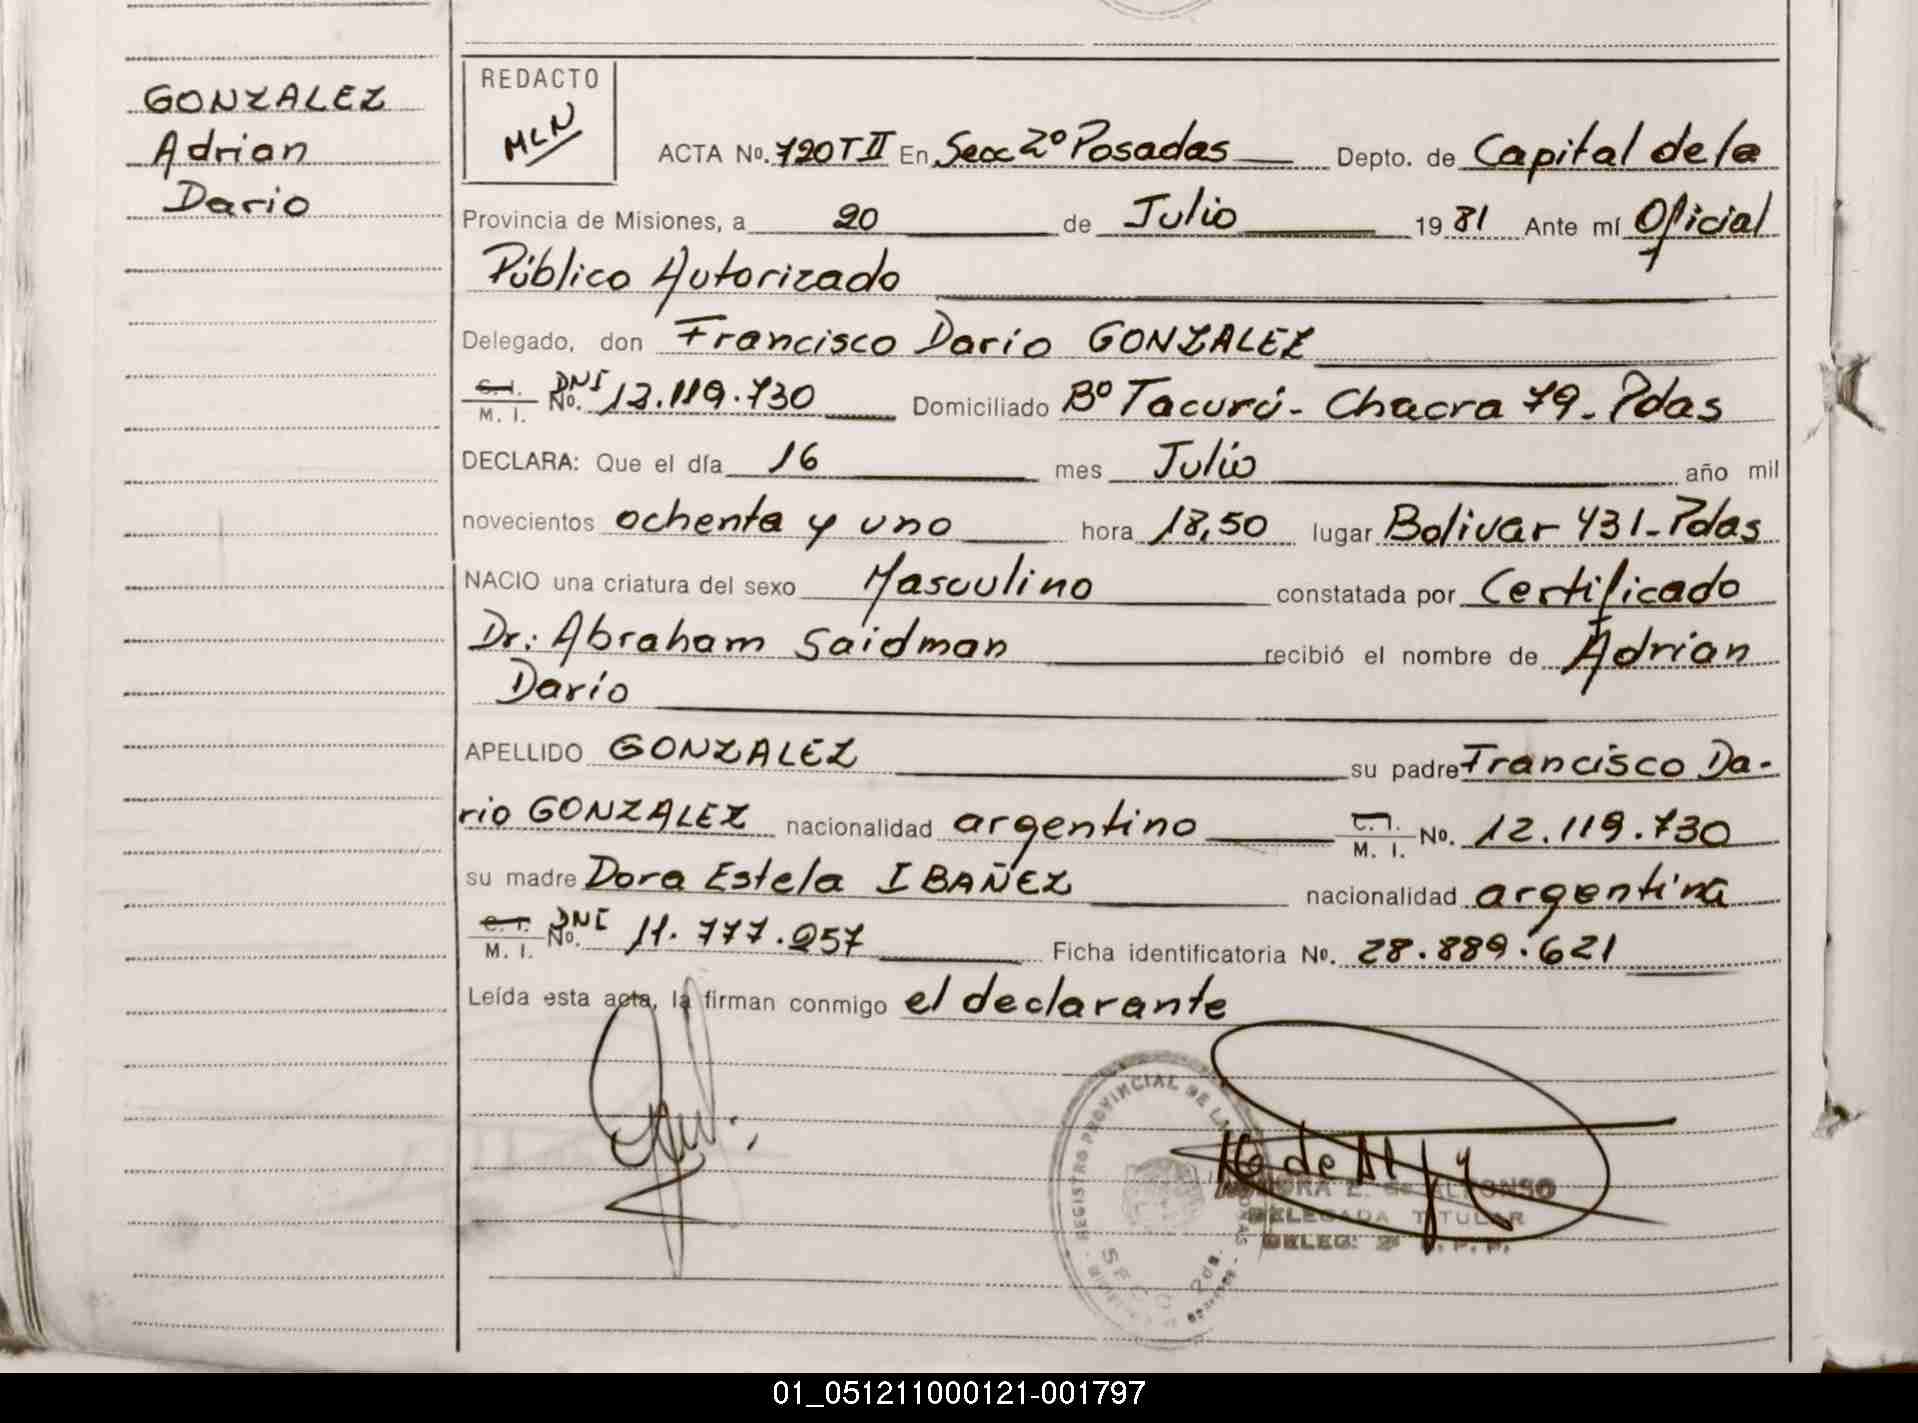 GONZALEZ
Adrian
Dario
REDACTO
MLN
ACTA No. 720 T II En Secc 2º Posadas Depto. de Capital de la
Provincia de Misiones, a 20 de Julio 1981 Ante mí Oficial
Público Autorizado
Delegado, don Francisco Darío GONZALEZ
C. I. M. I. DNI No. 12.119.730 Domiciliado Bº Tacurú - Chacra 79 - Pdas
DECLARA: Que el día 16 mes Julio año mil
novecientos ochenta y uno hora 18,50 lugar Bolivar 431 - Pdas
NACIO una criatura del sexo Masculino constatada por Certificado
Dr: Abraham Saidman recibió el nombre de Adrián
Darío
APELLIDO GONZALEZ su padre Francisco Da-
rio GONZALEZ nacionalidad argentino C. I. M. I. No. 12.119.730
su madre Dora Estela IBAÑEZ nacionalidad argentina
C. I. M. I. DNI No. 11.777.957 Ficha identificatoria No. 28.889.621
Leída esta acta, la firman conmigo el declarante
REGISTRO PROVINCIAL DE LAS
SECC 2da.
E. de ALFONSO
DELEGADA TITULAR
DELEG. 2ª
01_051211000121-001797